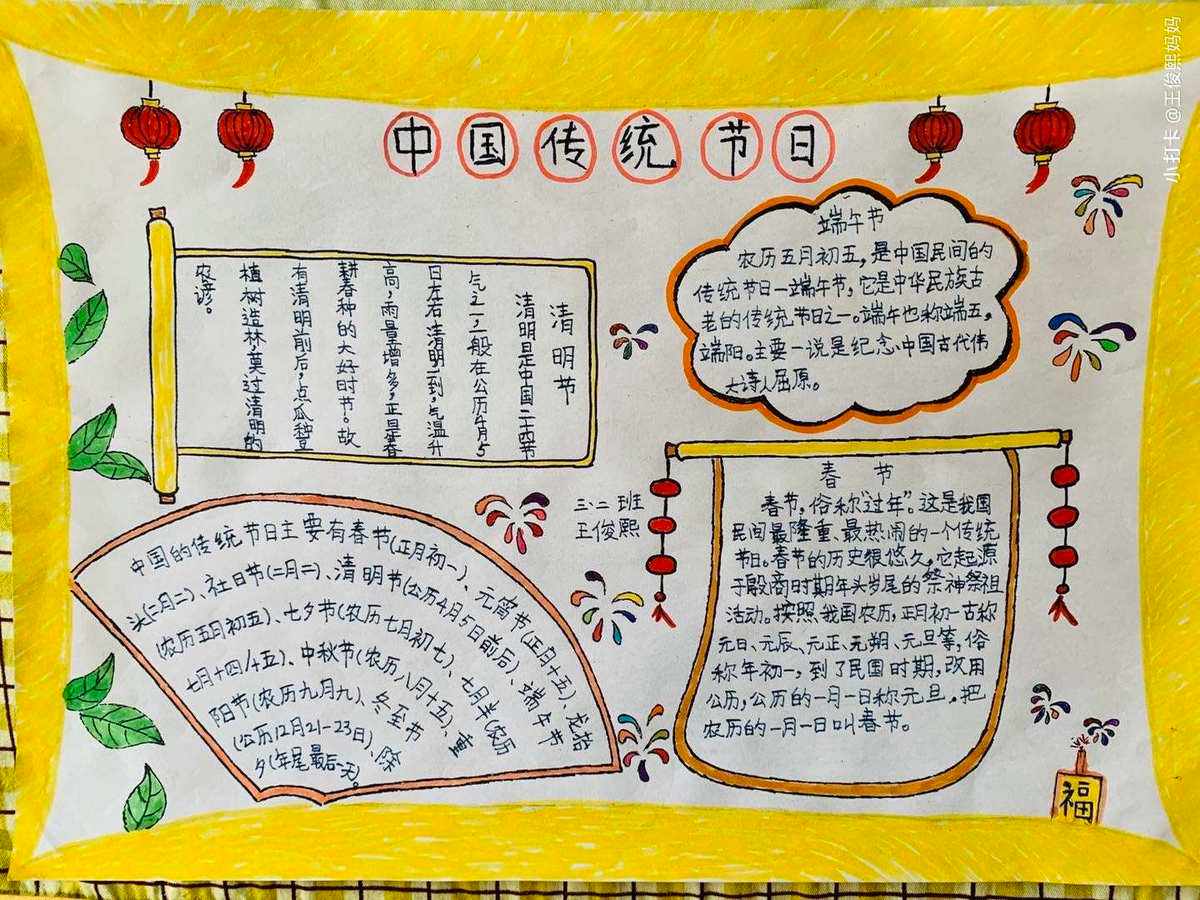 中国传统节日
清明节
清明是中国二十四节
气之一,一般在公历4月5
日左右。清明一到,气温升
高,雨量增多,正是春
耕春种的大好时节。故
有清明前后,点瓜种豆
植树造林,莫过清明的
农谚。
端午节
农历五月初五,是中国民间的
传统节日—端午节,它是中华民族古
老的传统节日之一。端午也称端五,
端阳。主要一说是纪念中国古代伟
大诗人屈原。
中国的传统节日主要有春节(正月初一)、元宵节(正月十五)、龙抬
头(二月二)、社日节(二月二)、清明节(公历4月5日前后)、端午节
(农历五月初五)、七夕节(农历七月初七)、七月半(农历
七月十四/十五)、中秋节(农历八月十五)、重
阳节(农历九月九)、冬至节
(公历12月21-23日)、除
夕(年尾最后一天)。
三、二班
王俊熙
春节
春节,俗称“过年”。这是我国
民间最隆重、最热闹的一个传统
节日。春节的历史很悠久,它起源
于殷商时期年头岁尾的祭神祭祖
活动。按照我国农历,正月初一古称
元日、元辰、元正、元朔、元旦等,俗
称年初一,到了民国时期,改用
公历,公历的一月一日称元旦,把
农历的一月一日叫春节。
福
小打卡@王俊熙妈妈